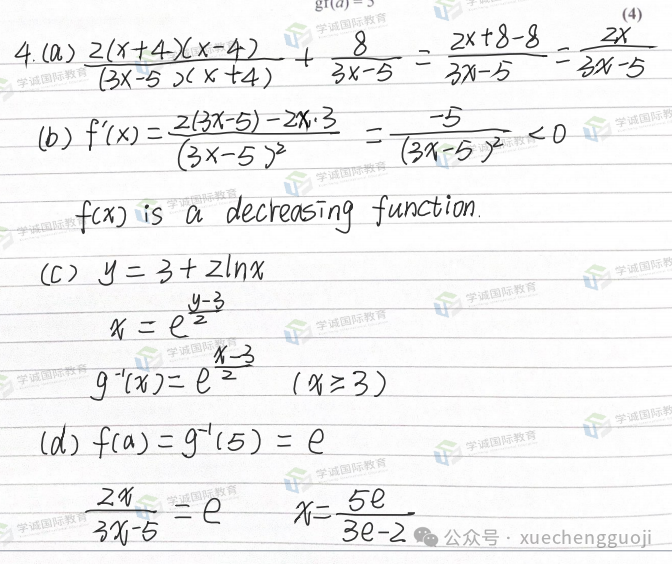 gf(a) = 5
(4)
4.(a) 2(x+4)(x-4)/(3x-5)(x+4) + 8/3x-5 = 2x+8-8/3x-5 = 2x/3x-5
(b) f'(x) = 2(3x-5)-2x·3/(3x-5)² = -5/(3x-5)² < 0
f(x) is a decreasing function.
(c) y = 3+2lnx
x = e^(y-3/2)
g⁻¹(x) = e^(x-3/2) (x≥3)
(d) f(a) = g⁻¹(5) = e
2x/3x-5 = e x = 5e/3e-2
公众号 · xuechengguoji
学诚国际教育